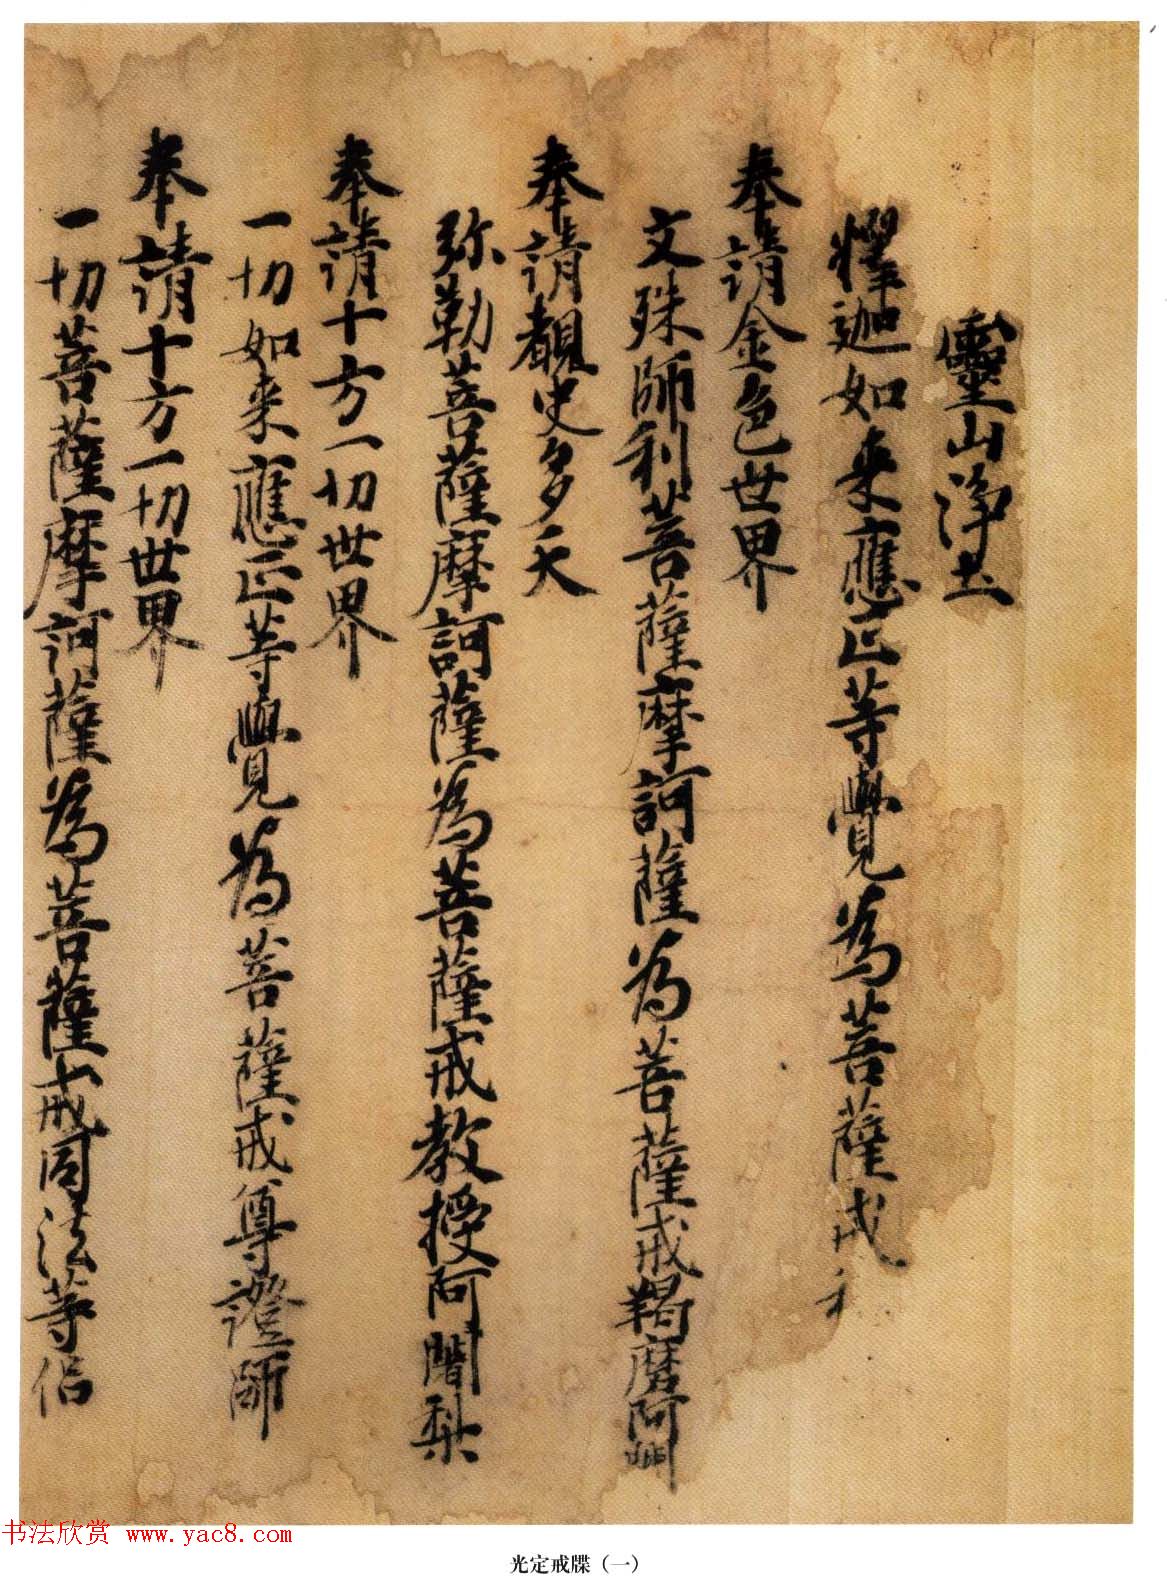 靈山淨土
釋迦如来應正等覺為菩薩戒和
奉請金色世界
文殊師利菩薩摩訶薩為菩薩戒羯磨阿闍
奉請覩史多天
弥勒菩薩摩訶薩為菩薩戒教授阿闍梨
奉請十方一切世界
一切如来應正等覺為菩薩戒尊證師
奉請十方一切世界
一切菩薩摩訶薩為菩薩戒同法等侣
书法欣赏 www.yac8.com
光定戒牒（一）